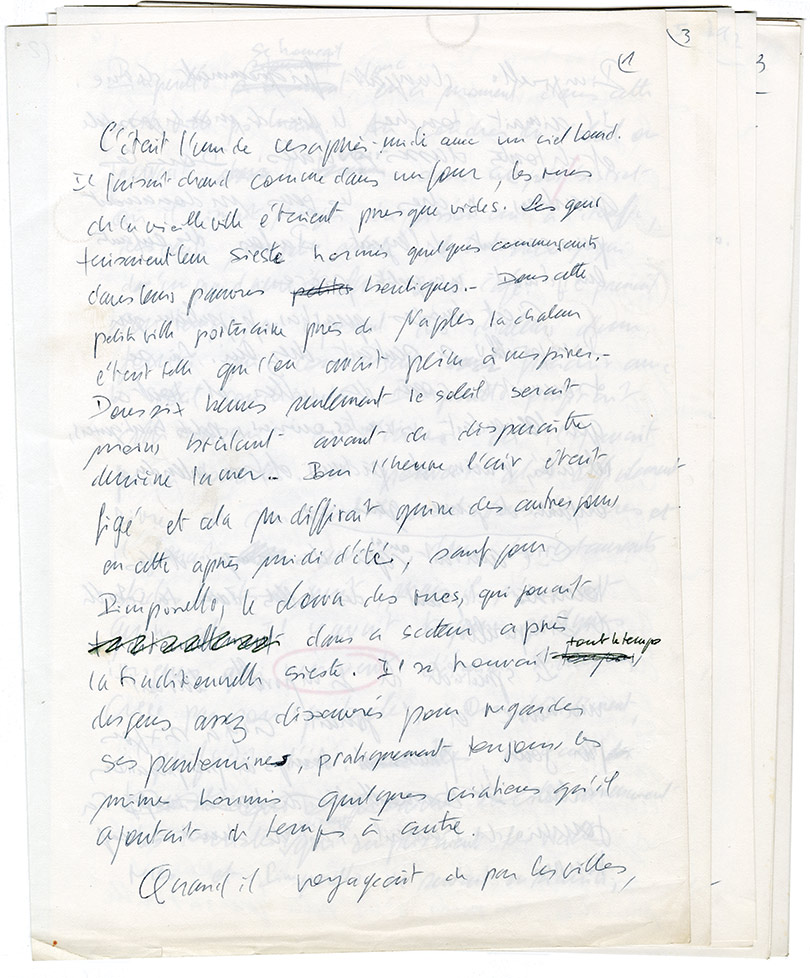 1
3
3
C'était l'un de ces après-midi avec un ciel lourd.
Il faisait chaud comme dans un four, les rues
de la vieille ville étaient presque vides. Les gens
faisaient leur sieste hormis quelques commerçants
dans leurs pauvres petites boutiques.- Dans cette
petite ville portuaire près de Naples la chaleur
était telle que l'on avait peine à respirer.-
Dans six heures seulement le soleil serait
moins brûlant avant de disparaître
derrière la mer.- Pour l'heure l'air était
figé et cela ne différait guère des autres jours
en cette après midi d'été, sauf pour
Pimporello, le clown des rues, qui jouait
dans ce secteur après
la traditionnelle sieste. Il se trouvait tout le temps
des gens assez désœuvrés pour regarder
ses pantomimes, pratiquement toujours les
mêmes hormis quelques créations qu'il
ajoutait de temps à autre.
Quand il voyageait de par les villes,